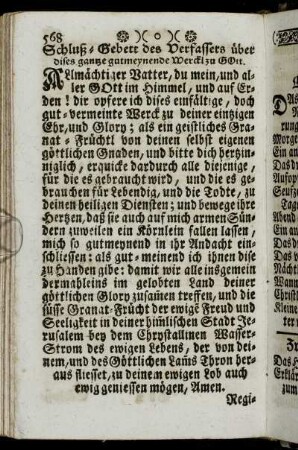 568 )o(
Schluß-Gebett des Verfassers über
dises gantze gutmeynende Werckl zu GOtt.
ALmächtiger Vatter, du mein, und al-
ler GOtt im Himmel, und auf Er-
den! dir opfere ich dises einfältige, doch
gut-vermeinte Werck zu deiner eintzigen
Ehr, und Glory; als ein geistliches Gra-
nat-Früchtl von deinen selbst eigenen
göttlichen Gnaden, und bitte dich hertzin-
niglich, erquicke dardurch alle diejenige,
für die es gebraucht wird, und die es ge-
brauchen für Lebendig, und die Todte, zu
deinen heiligen Diensten; und bewege ihre
Hertzen, daß sie auch auf mich armen Sün-
dern zuweilen ein Körnlein fallen lassen,
mich so gutmeynend in ihr Andacht ein-
schliessen: als gut-meinend ich ihnen dise
zu Handen gibe: damit wir alle insgemein
dermahleins im gelobten Land deiner
göttlichen Glory zusamen treffen, und die
süsse Granat-Frücht der ewige Freud und
Seeligkeit in deiner himlischen Stadt Je-
rusalem bey dem Chrystallinen Wasser-
Strom des ewigen Lebens, der von dei-
nem, und des Göttlichen Lams Thron her-
aus fliesset, zu deinem ewigen Lob auch
ewig geniessen mögen, Amen.
Regi-